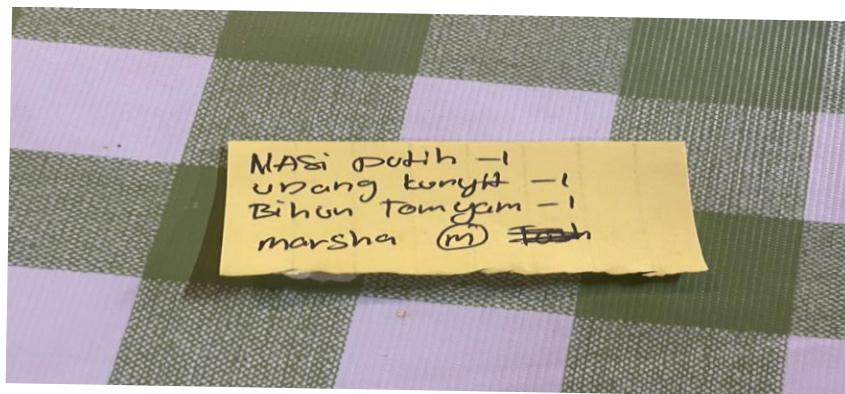 NASi putih -1
udang kunyit -1
Bihun Tomyam -1
marsha m